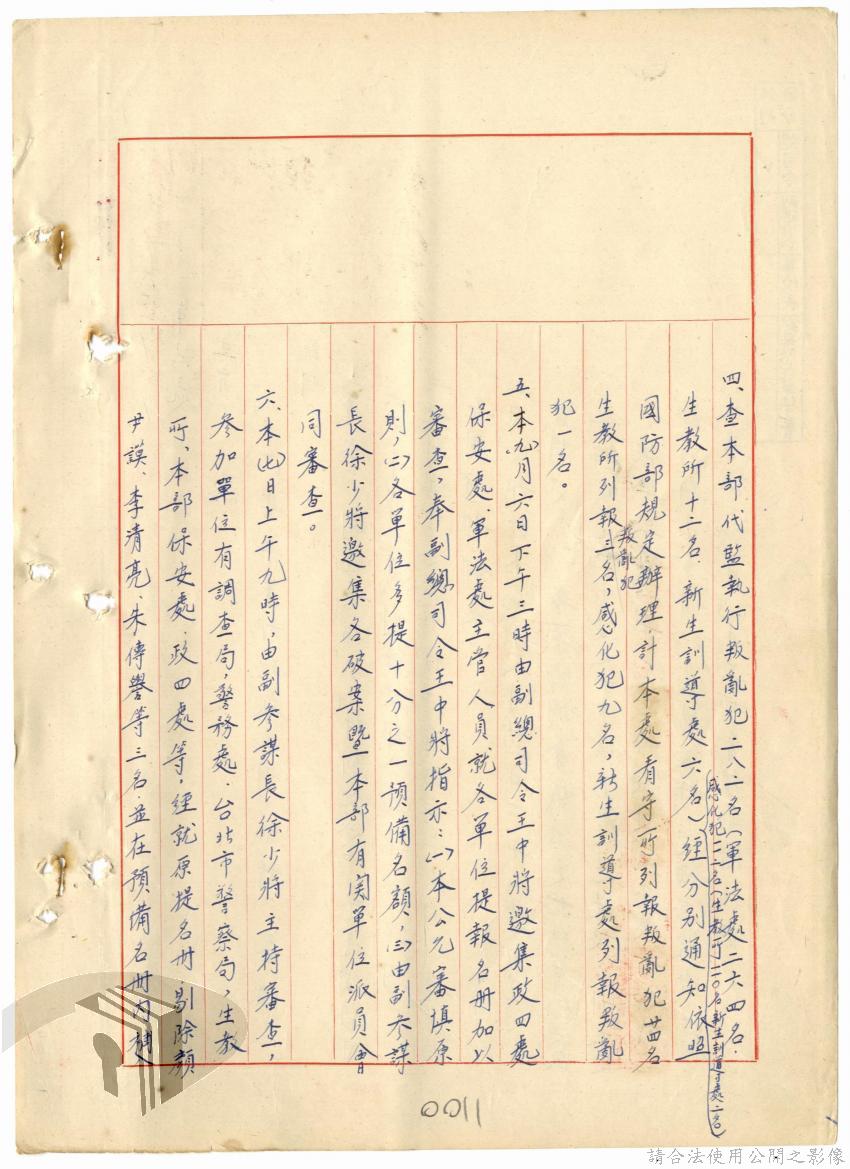 四、查本部代監執行叛亂犯二八二名(軍法處二六四名.
生教所十二名.新生訓導處六名)經分別通知依照
感化犯一一二名(生教所一一〇名新生訓導處二名)
國防部規定辦理.計本處看守所列報叛亂犯廿四名
生教所列報叛亂犯三名,感化犯九名,新生訓導處列報叛亂
犯一名。
五、本(九)月六日下午三時由副總司令王中將邀集政四處
保安處.軍法處主管人員就各單位提報名冊加以
審查,奉副總司令王中將指示:(一)本公允審慎原
則,(二)各單位多提十分之一預備名額,(三)由副參謀
長徐少將邀集各破案暨本部有関單位派員會
同審查。
六、本(七)日上午九時,由副參謀長徐少將主持審查,
參加單位有調查局,警務處.台北市警察局,生教
所、本部保安處.政四處等,經就原提名冊剔除顏
尹謨、李清亮、朱傳譽等三名.並在預備名冊內補
0011
請合法使用公開之影像